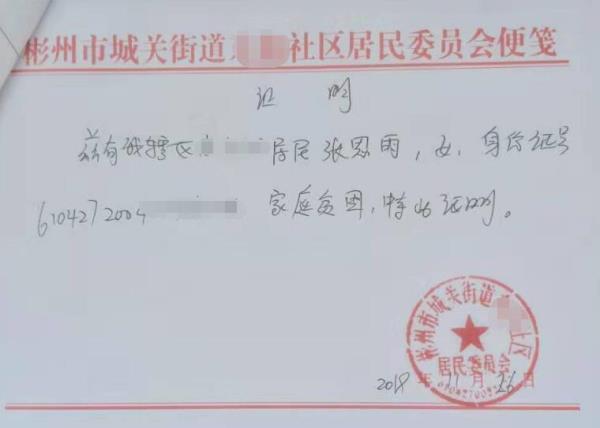 彬州市城关街道 社区居民委员会便笺
证 明
兹有我辖区 居民张恩雨,女,身份证号
6104272004 家庭贫困,特此证明。
彬州市城关街道 社区
居民委员会
2018年11月26日